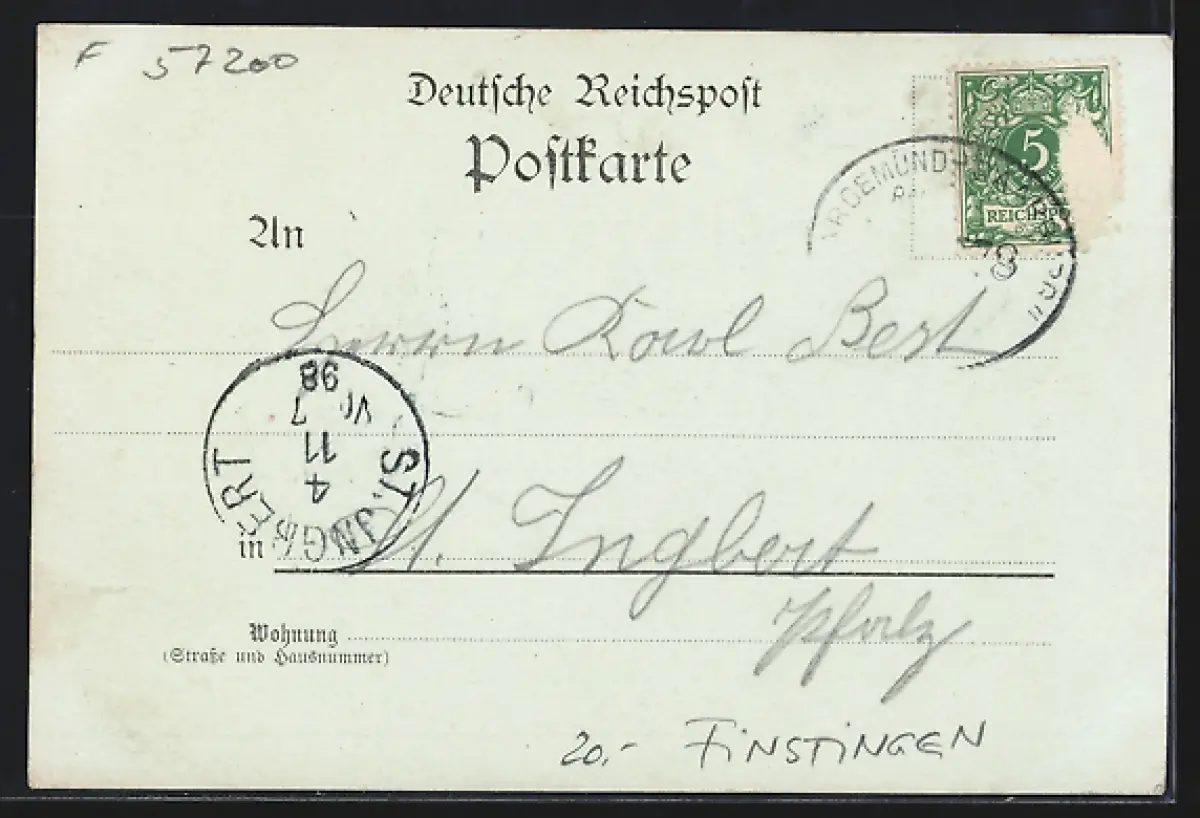 F 57200
Deutsche Reichspost
Postkarte
5
REICHSPO
An
Herrn Karl Best
98
7
11
4
ST. INGBERT
in St. Ingbert
Pfalz
Wohnung
(Straße und Hausnummer)
20.- FINSTINGEN